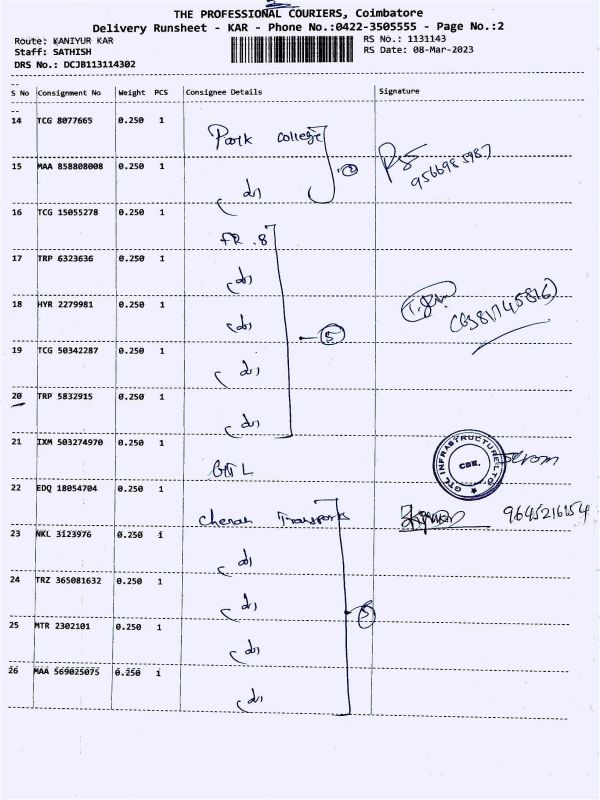 THE PROFESSIONAL COURIERS, Coimbatore
Delivery Runsheet - KAR - Phone No.:0422-3505555 - Page No.:2
Route: KANIYUR KAR
RS No.: 1131143
Staff: SATHISH
RS Date: 08-Mar-2023
DRS No.: DCJB113114302
S No Consignment No Weight PCS Consignee Details Signature
14 TCG 8077665 0.250 1 Park College
15 MAA 858808008 0.250 1 (do)
2
16 TCG 15055278 0.250 1 FR.8
17 TRP 6323636 0.250 1 (do)
18 HYR 2279981 0.250 1 (do)
5
19 TCG 50342287 0.250 1 (do)
20 TRP 5832915 0.250 1 (do)
21 IXM 503274970 0.250 1 GTL
GTL INFRASTRUCTURE LTD.
CBE.
22 EDQ 18054704 0.250 1 Cheran Transports
9645216154
23 NKL 3123976 0.250 1 (do)
24 TRZ 365081632 0.250 1 (do)
5
25 MTR 2302101 0.250 1 (do)
26 MAA 569025075 0.250 1 (do)